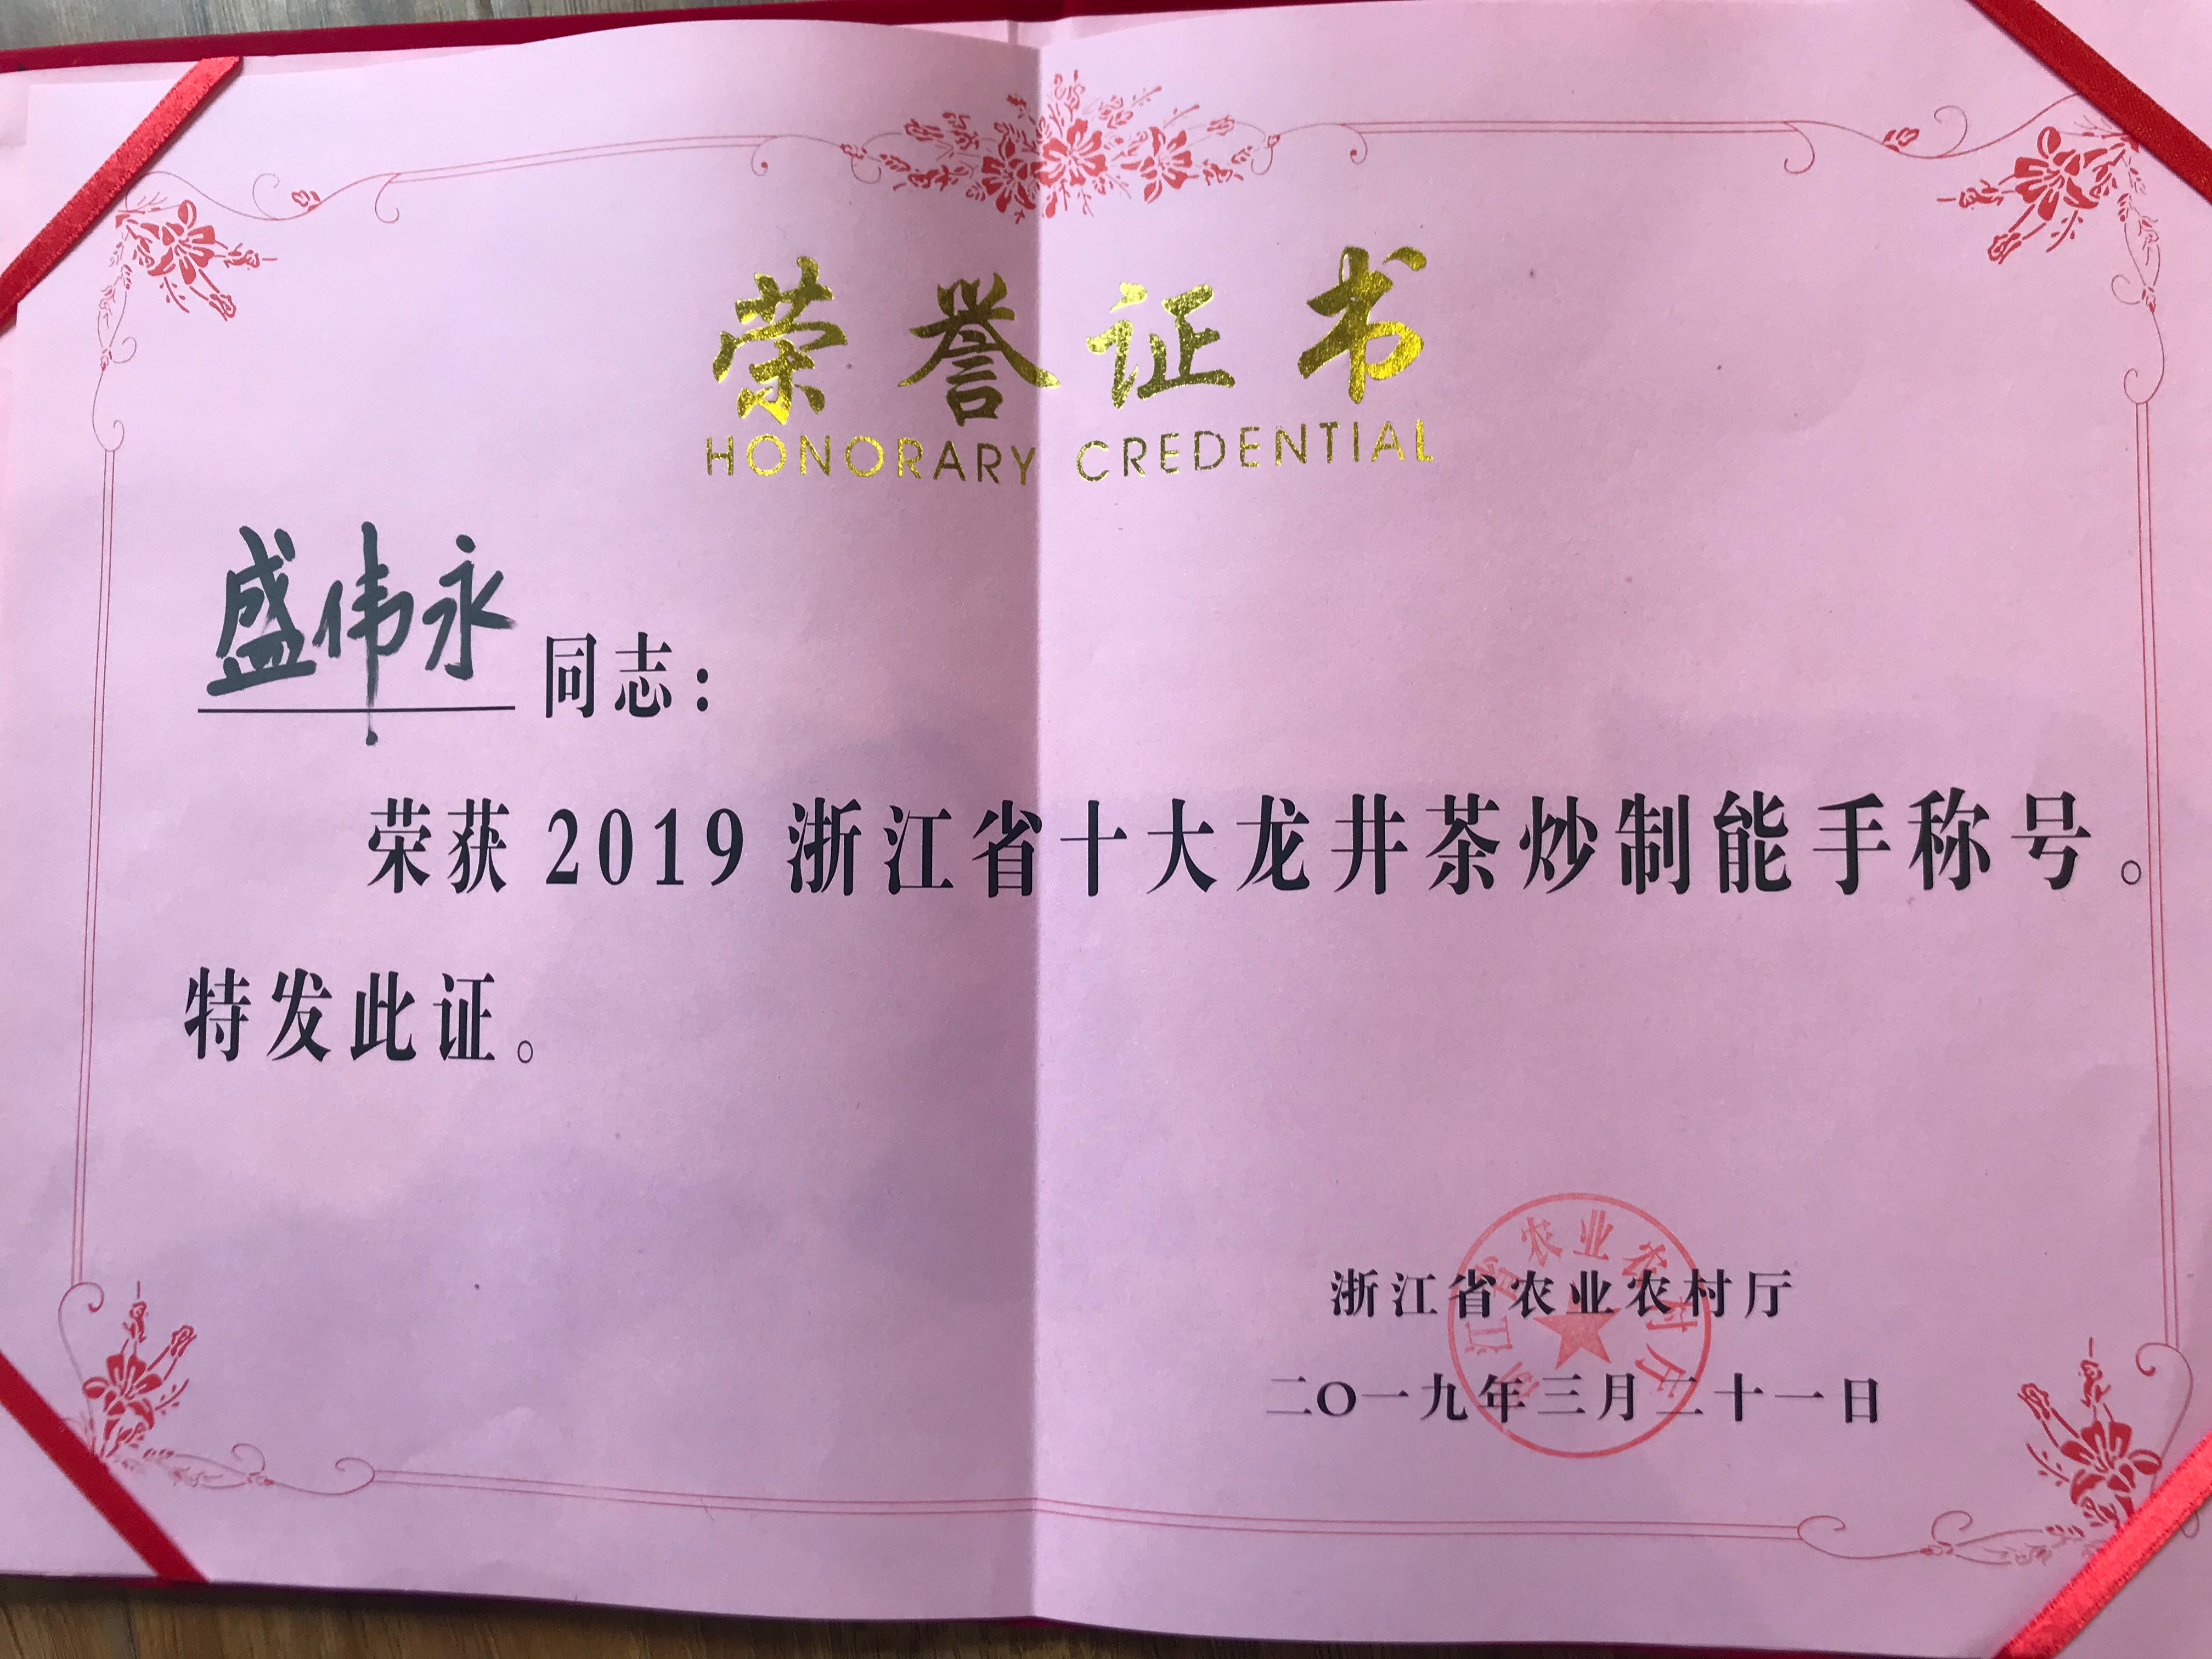 荣誉证书
HONORARY CREDENTIAL
盛伟永同志：
荣获2019浙江省十大龙井茶炒制能手称号。
特发此证。
浙江省农业农村厅
二〇一九年三月二十一日
浙江省农业农村厅